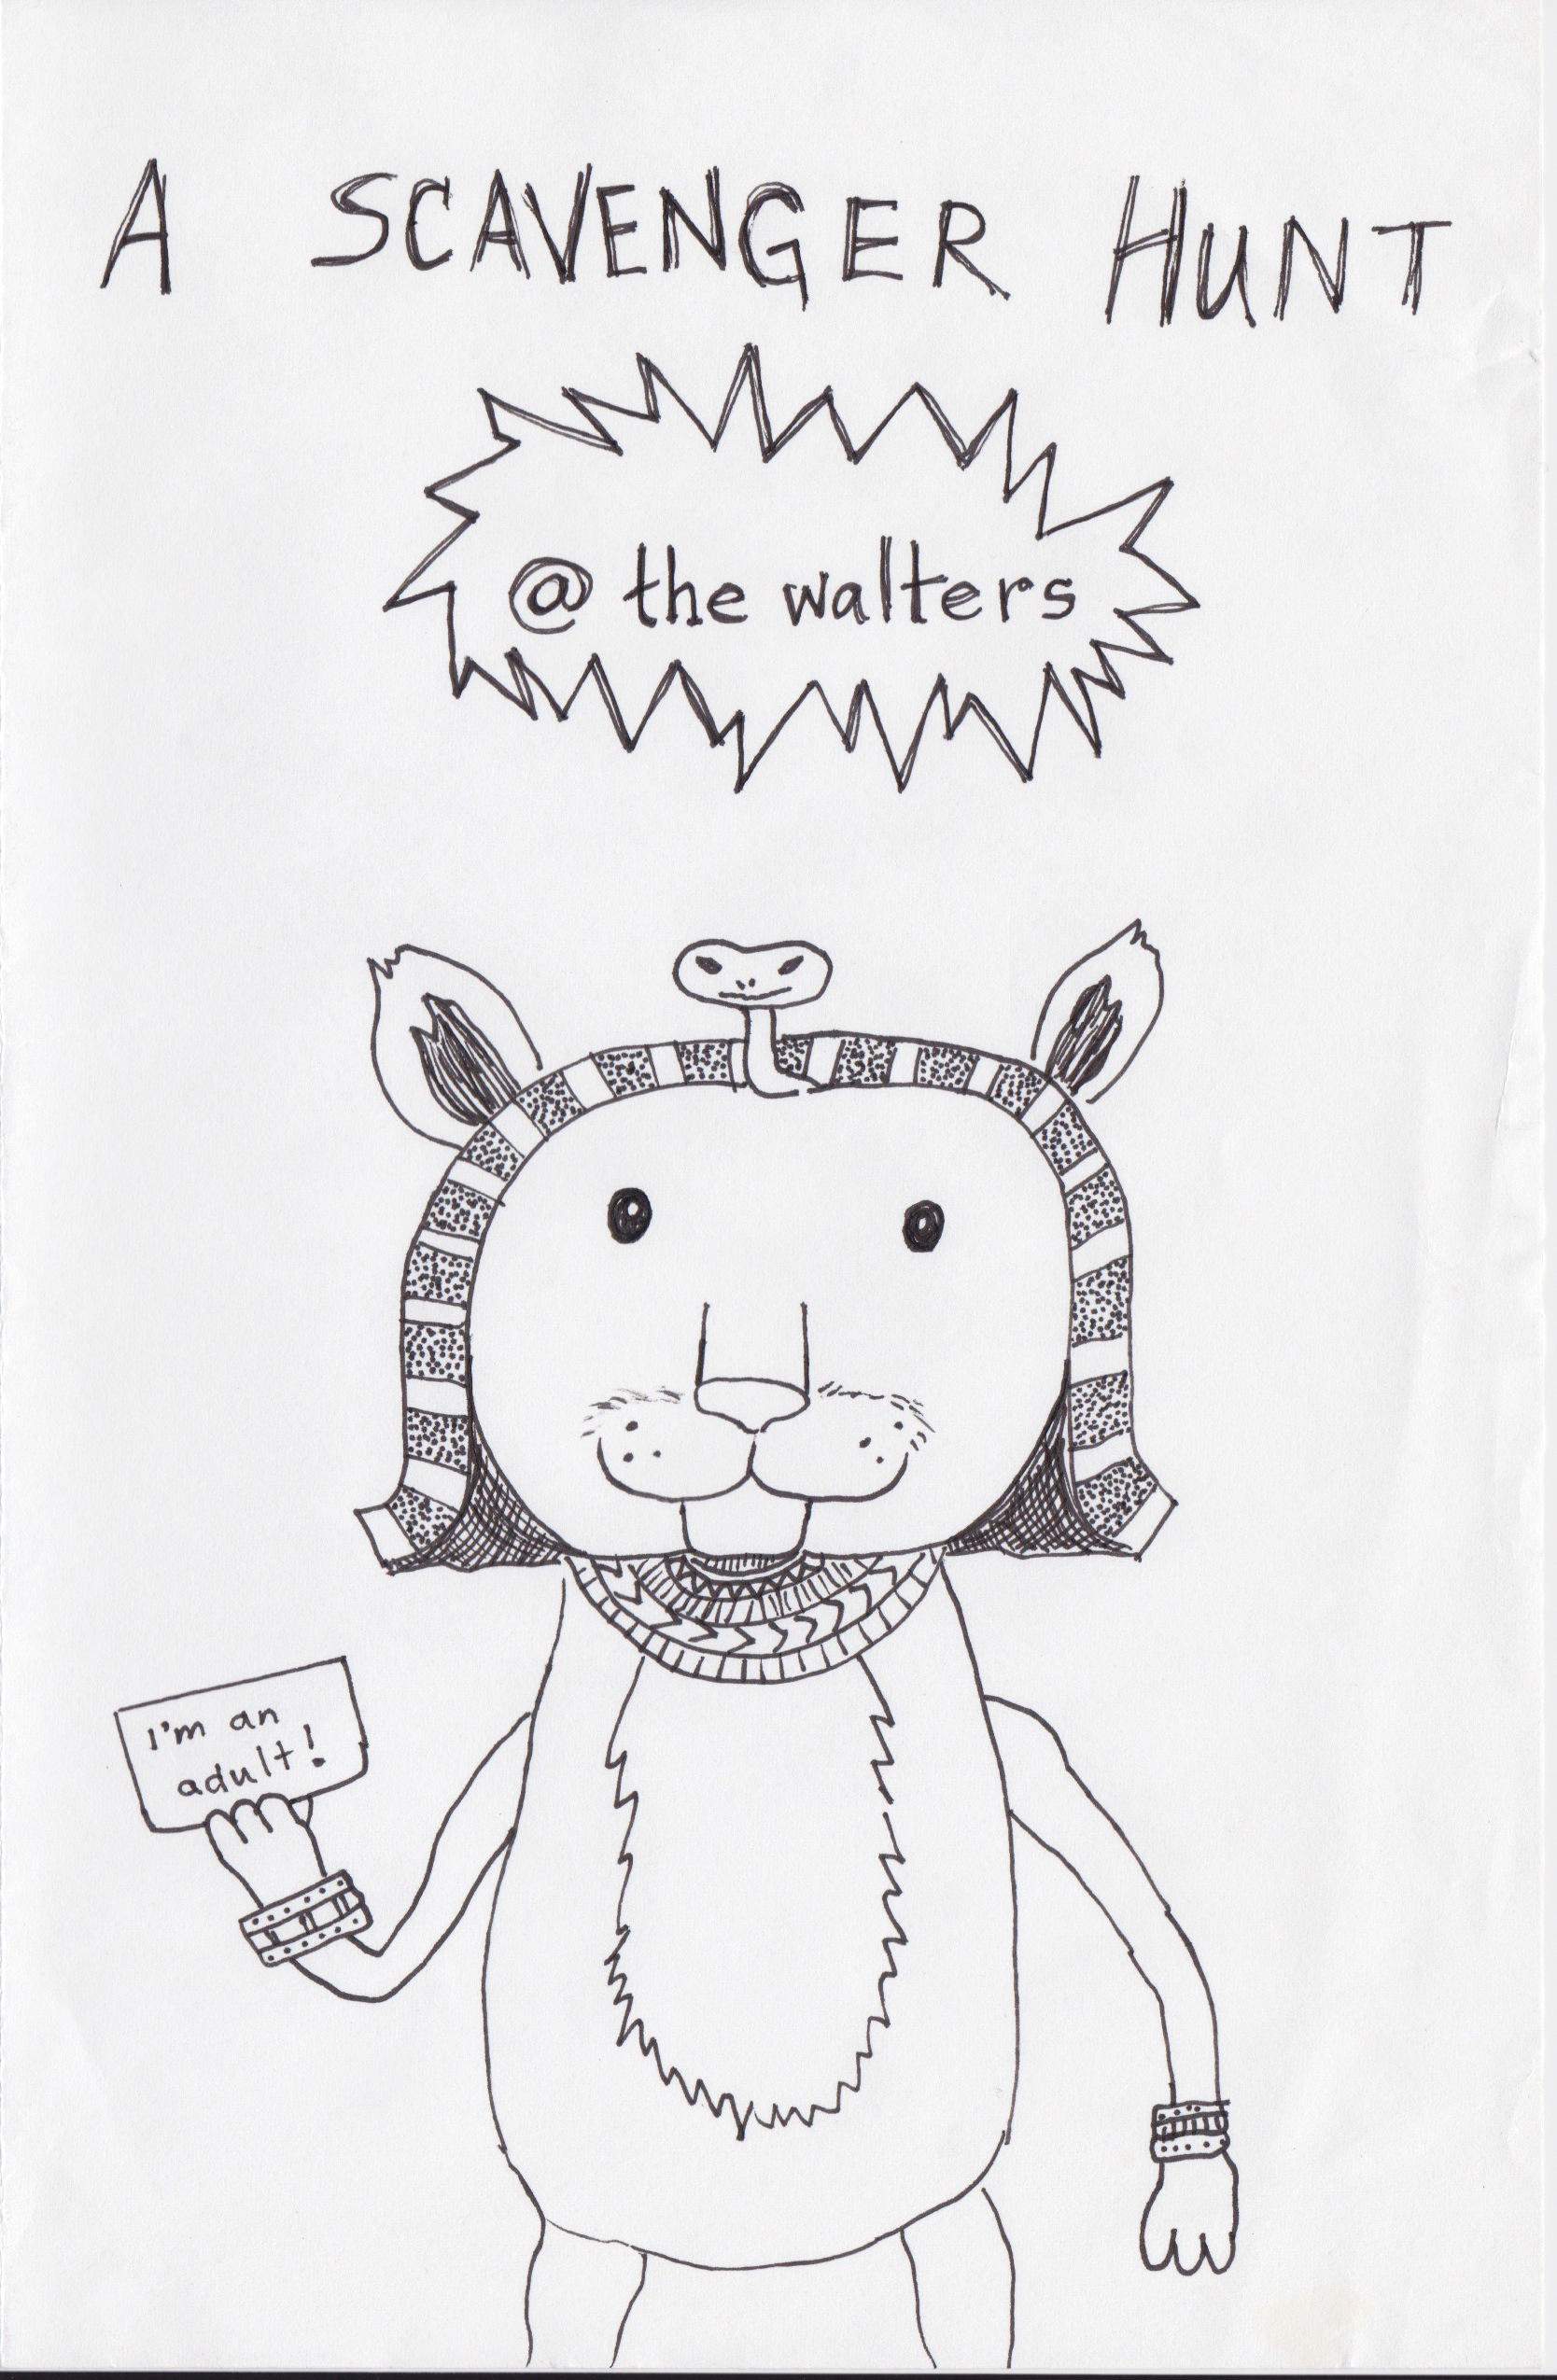 A SCAVENGER HUNT
@ the walters
I'm an
adult!